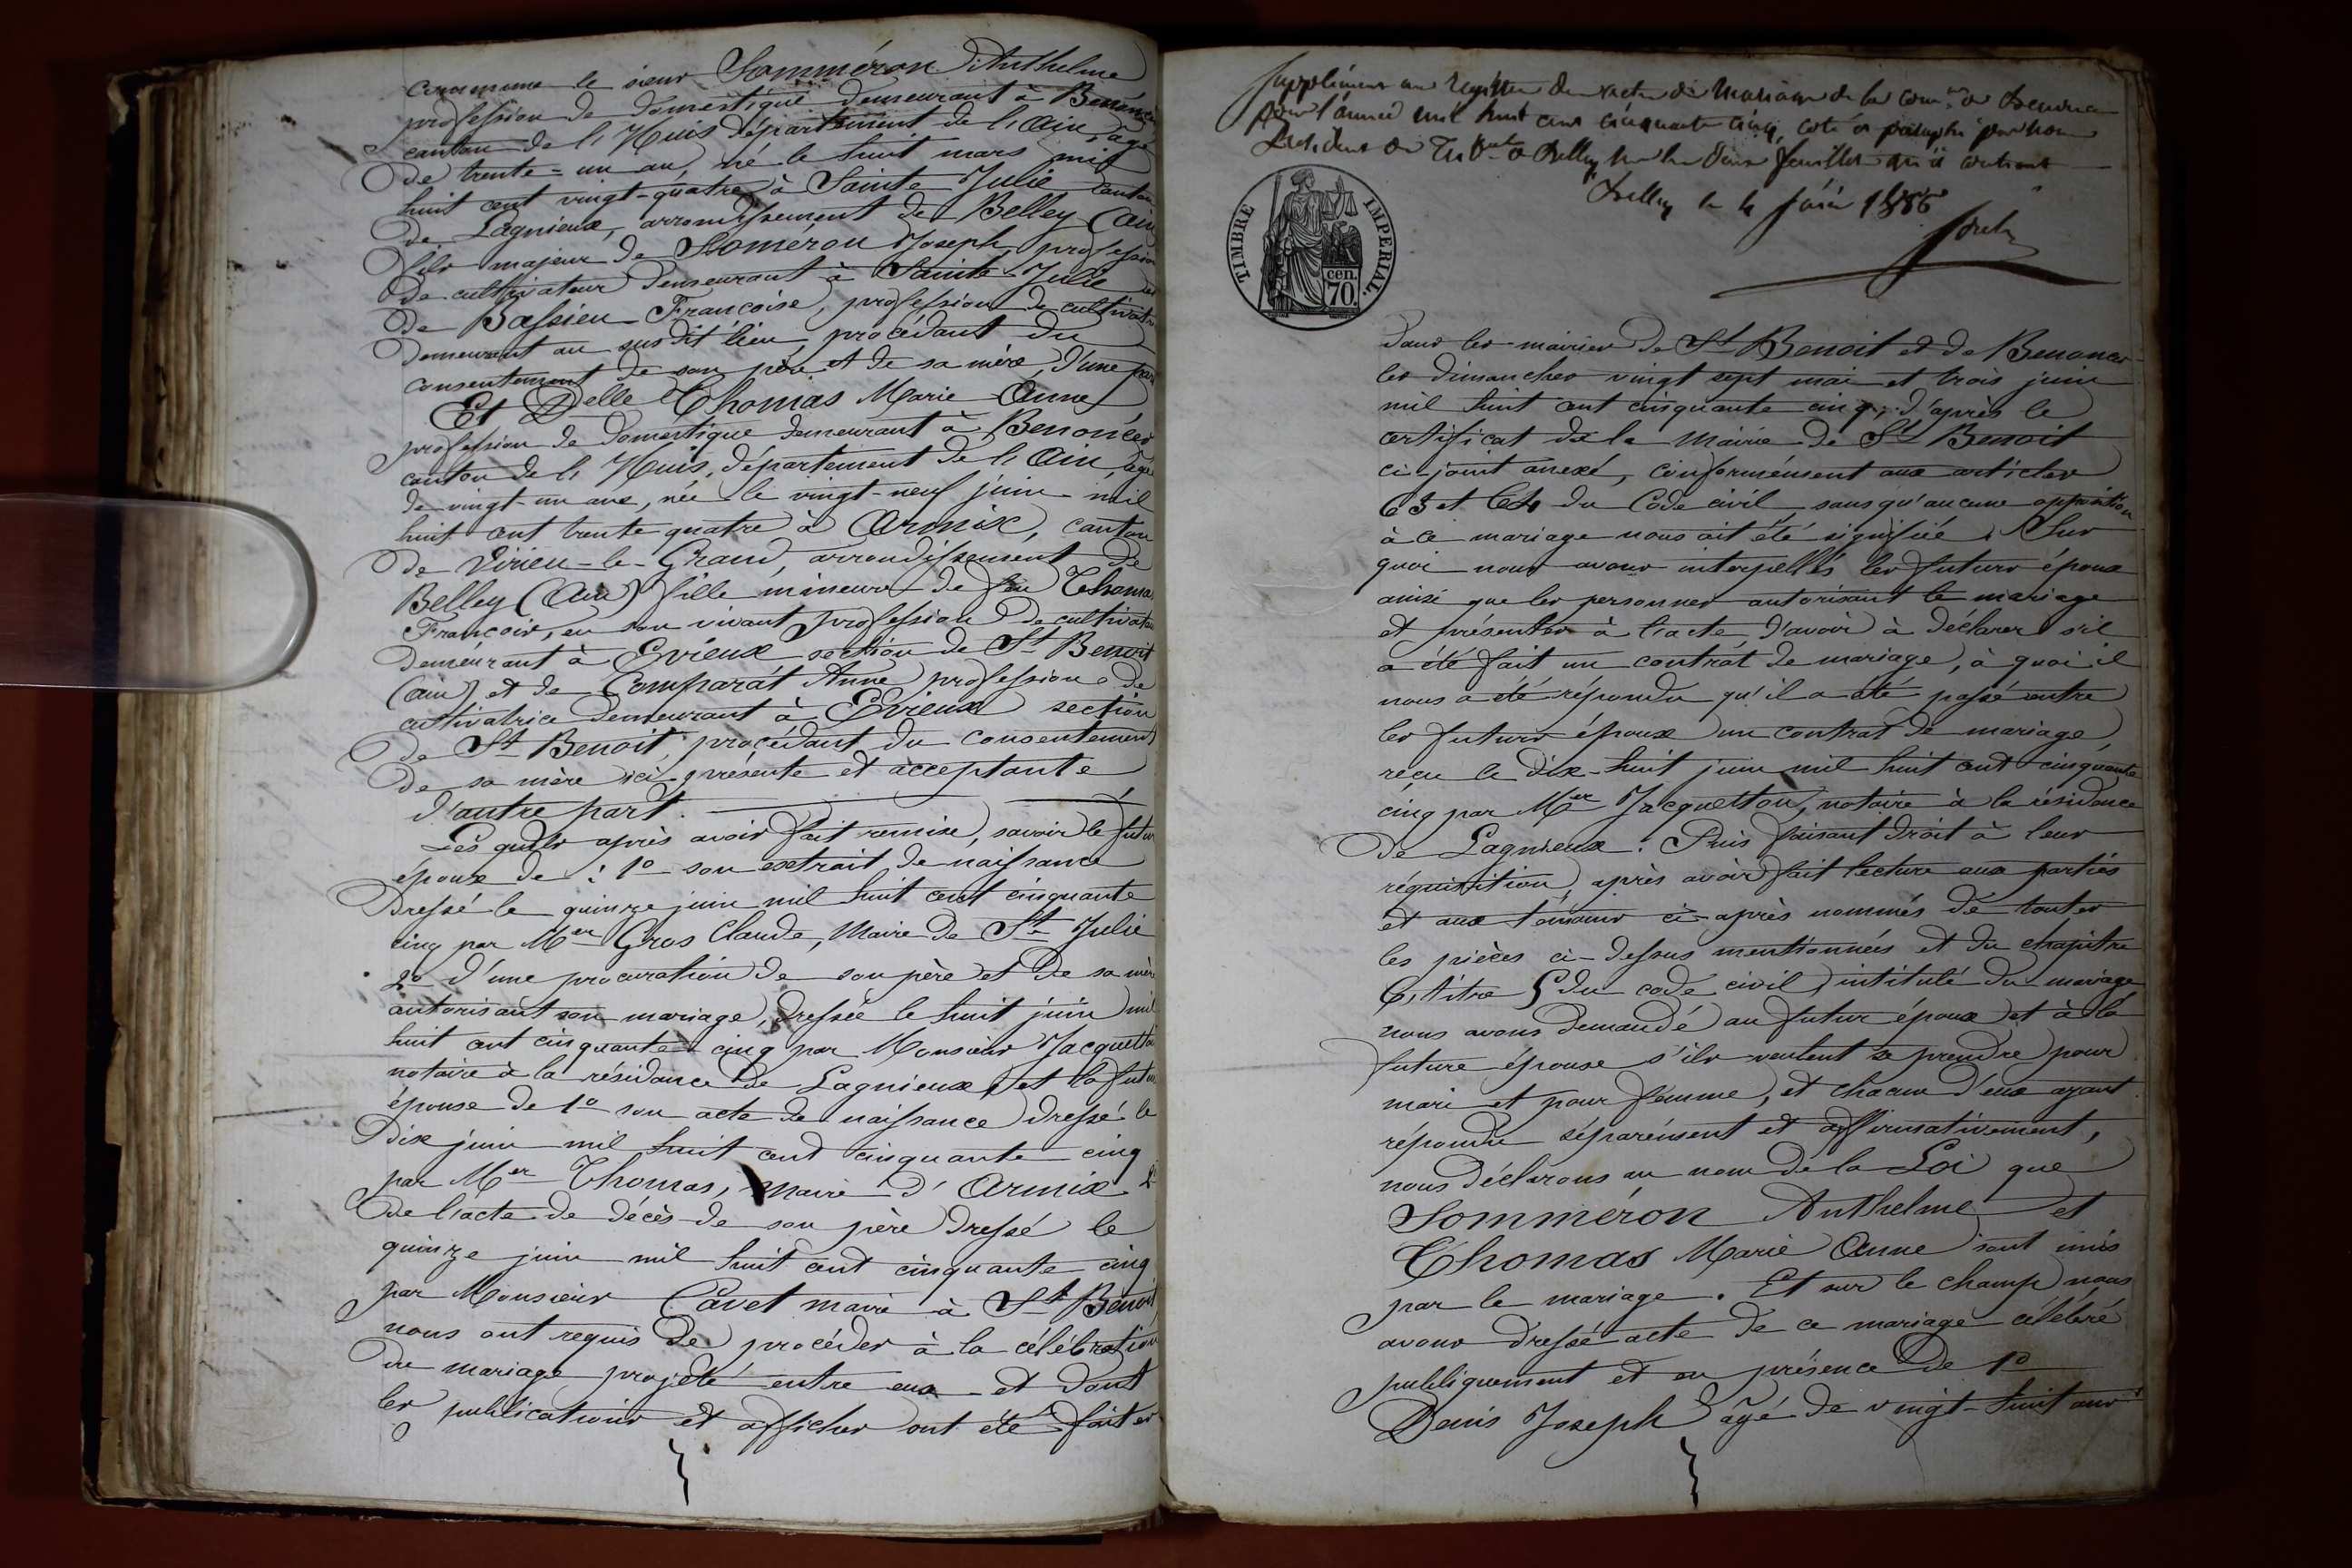 commune le sieur Somméron Anthelme
profession de domestique demeurant à Benonces
canton de l'Huis département de l'Ain, âgé
de trente-un an, né le huit mars mil
huit cent vingt-quatre à Sainte Julie canton
de Lagnieux, arrondissement de Belley (Ain
fils majeur de Soméron Joseph profession
de cultivateur demeurant à Sainte Julie
de Bassieu Françoise, profession de cultivatr
demeurant au susdit lieu, procédant du
consentement de son père et de sa mère, d'une part
Et Delle Thomas Marie Anne
profession de domestique demeurant à Benonces
canton de l'Huis, département de l'Ain, âgée
de vingt-un ans, née le vingt-neuf juin mil
huit cent trente quatre à Armix, canton
de Virieu-le-Grand, arrondissement de
Belley (Ain) fille mineure de feu Thomas
François, en son vivant profession de cultivateu
demeurant à Evieux section de St Benoit
(ain) et de Comparat Anne profession de
cultivatrice demeurant à Evieux section
de St Benoit procédant du consentement
de sa mère ici présente et acceptante
d'autre part.
Les quels après avoir fait remise, savoir le futur
époux de : 1o son extrait de naissance
dressé le quinze juin mil huit cent cinquante
cinq par Mer Gros Claude, Maire de Ste Julie
2o d'une procuration de son père et de sa mère
autorisant son mariage, dressée le huit juin mil
huit cent cinquante cinq par Monsieur Jacquetto
notaire à la résidance de Lagnieux, et la futur
épouse de 1o son acte de naissance dressé le
dix juin mil huit cent cinquante cinq
par Mer Thomas, maire d'Armix 2o
de l'acte de décès de son père dressé le
quinze juin mil huit cent cinquante cinq
par Monsieur Cavet maire à St Benoit
nous ont requis de procéder à la célébration
du mariage projeté entre eux et dont
les publications et affiches ont été faites
Supplément au registre des actes de Mariage de la comne de
pour l'année mil huit cent cinquante cinq, coté et paraphé par nous
Président du Tribal de Belley sur les deux feuillets qu'il contient
Belley le 4
TIMBRE IMPERIAL.
cen.
70.
dans les mairies de St Benoit et de Benonces
les dimanches vingt sept mai et trois juin
mil huit cent cinquante cinq, d'après le
certificat de la mairie de St Benoit
ci-joint anexé, conformément aux articles
63 et 64 du Code civil, sans qu'aucune opposition
à ce mariage nous ait été signifiée. Sur
quoi nous avons interpellés les futurs époux
ainsi que les personnes autorisant le mariage
et présentes à l'acte d'avoir à déclarer s'il
a été fait un contrat de mariage, à quoi il
nous a été répondu qu'il a été passé entre
les futurs époux un contrat de mariage,
reçu le dix-huit juin mil huit cent cinquante
cinq par Mer Jacquetton, notaire à la résidance
de Lagnieux. Puis faisant droit à leur
réquisition, après avoir fait lecture aux parties
et aux témoins ci-après nommés de toutes
les pièces ci-dessus mentionnées et du chapitre
6, titre 5 du code civil, intitulé du mariage
nous avons demandé au futur époux et à la
future épouse s'ils veulent se prendre pour
mari et pour femme, et chacun d'eux ayant
répondu séparément et affirmativement,
nous déclarons au nom de la Loi que
Somméron Anthelme et
Thomas Marie Anne sont unis
par le mariage. Et sur le champ nous
avons dressé acte de ce mariage célébré
publiquement et en présence de 1o
Denis Joseph âgé de vingt-huit ans